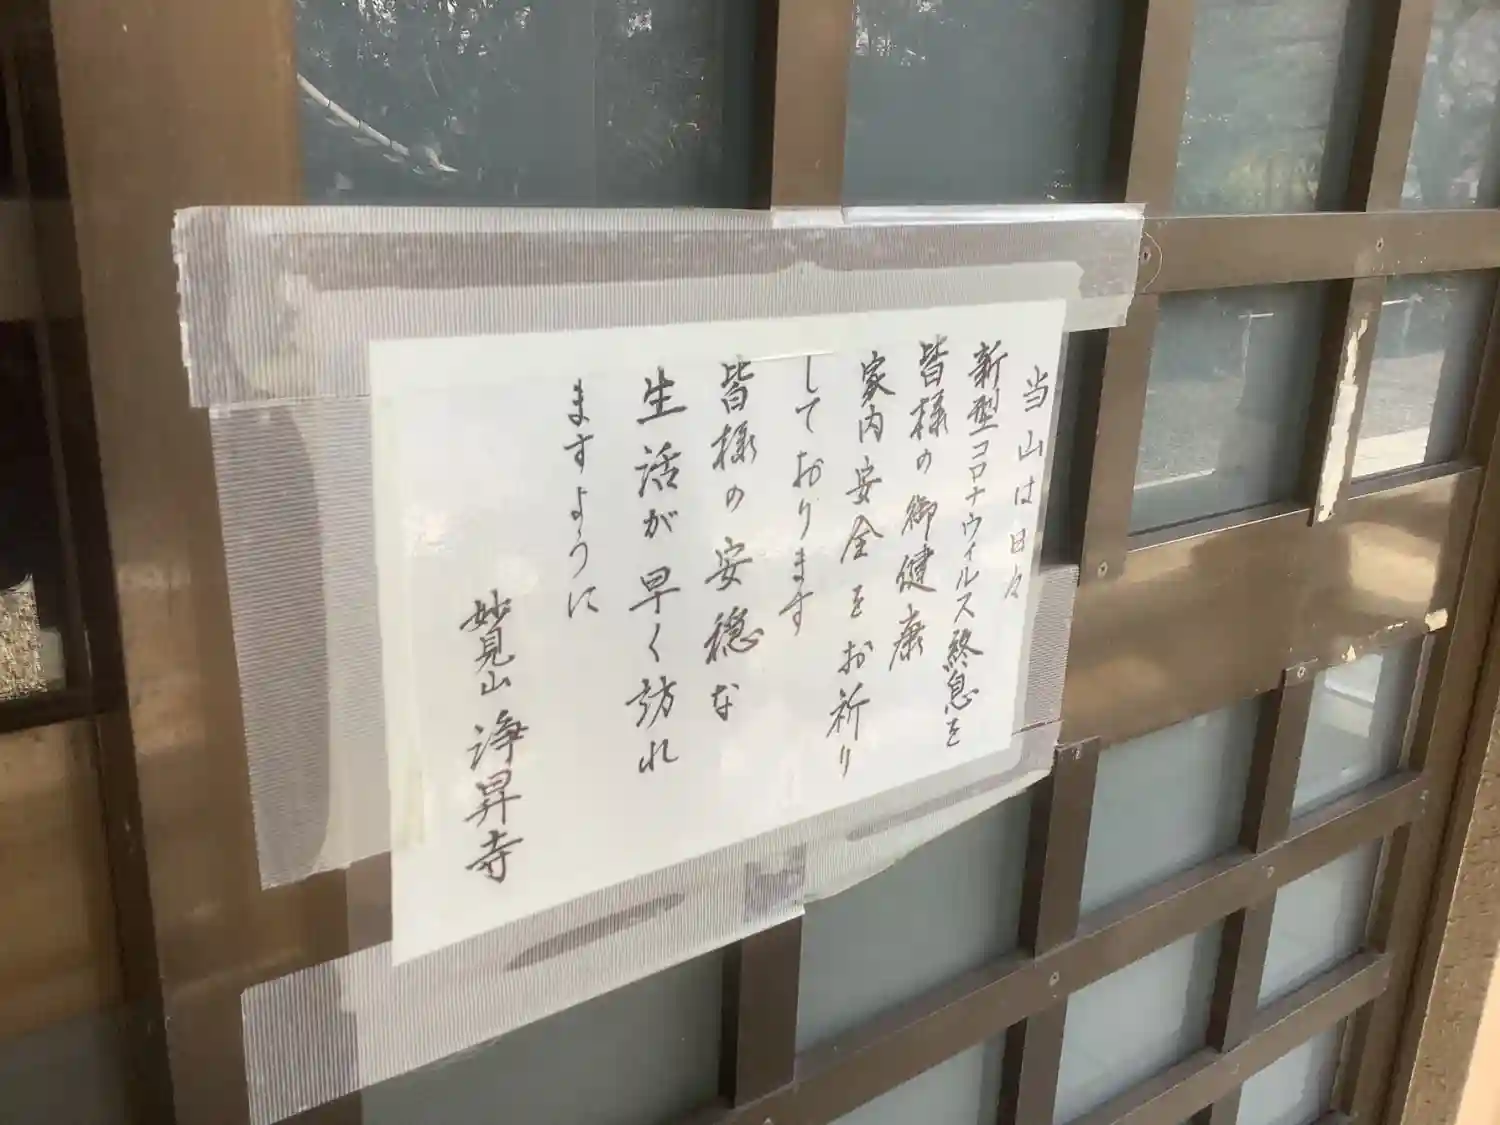 当山は日々
新型コロナウィルス終息を
皆様の御健康
家内安全をお祈り
しております
皆様の安穏な
生活が早く訪れ
ますように
妙見山 浄昇寺